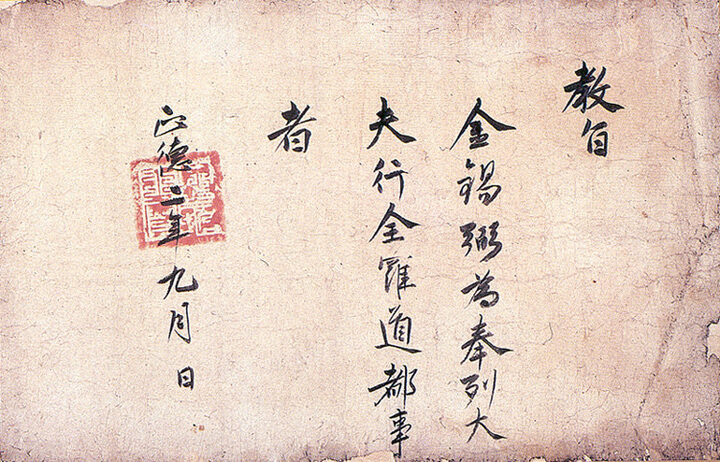 教旨
金錫弼為奉列大
夫行全羅道都事
者
正德二年九月 日